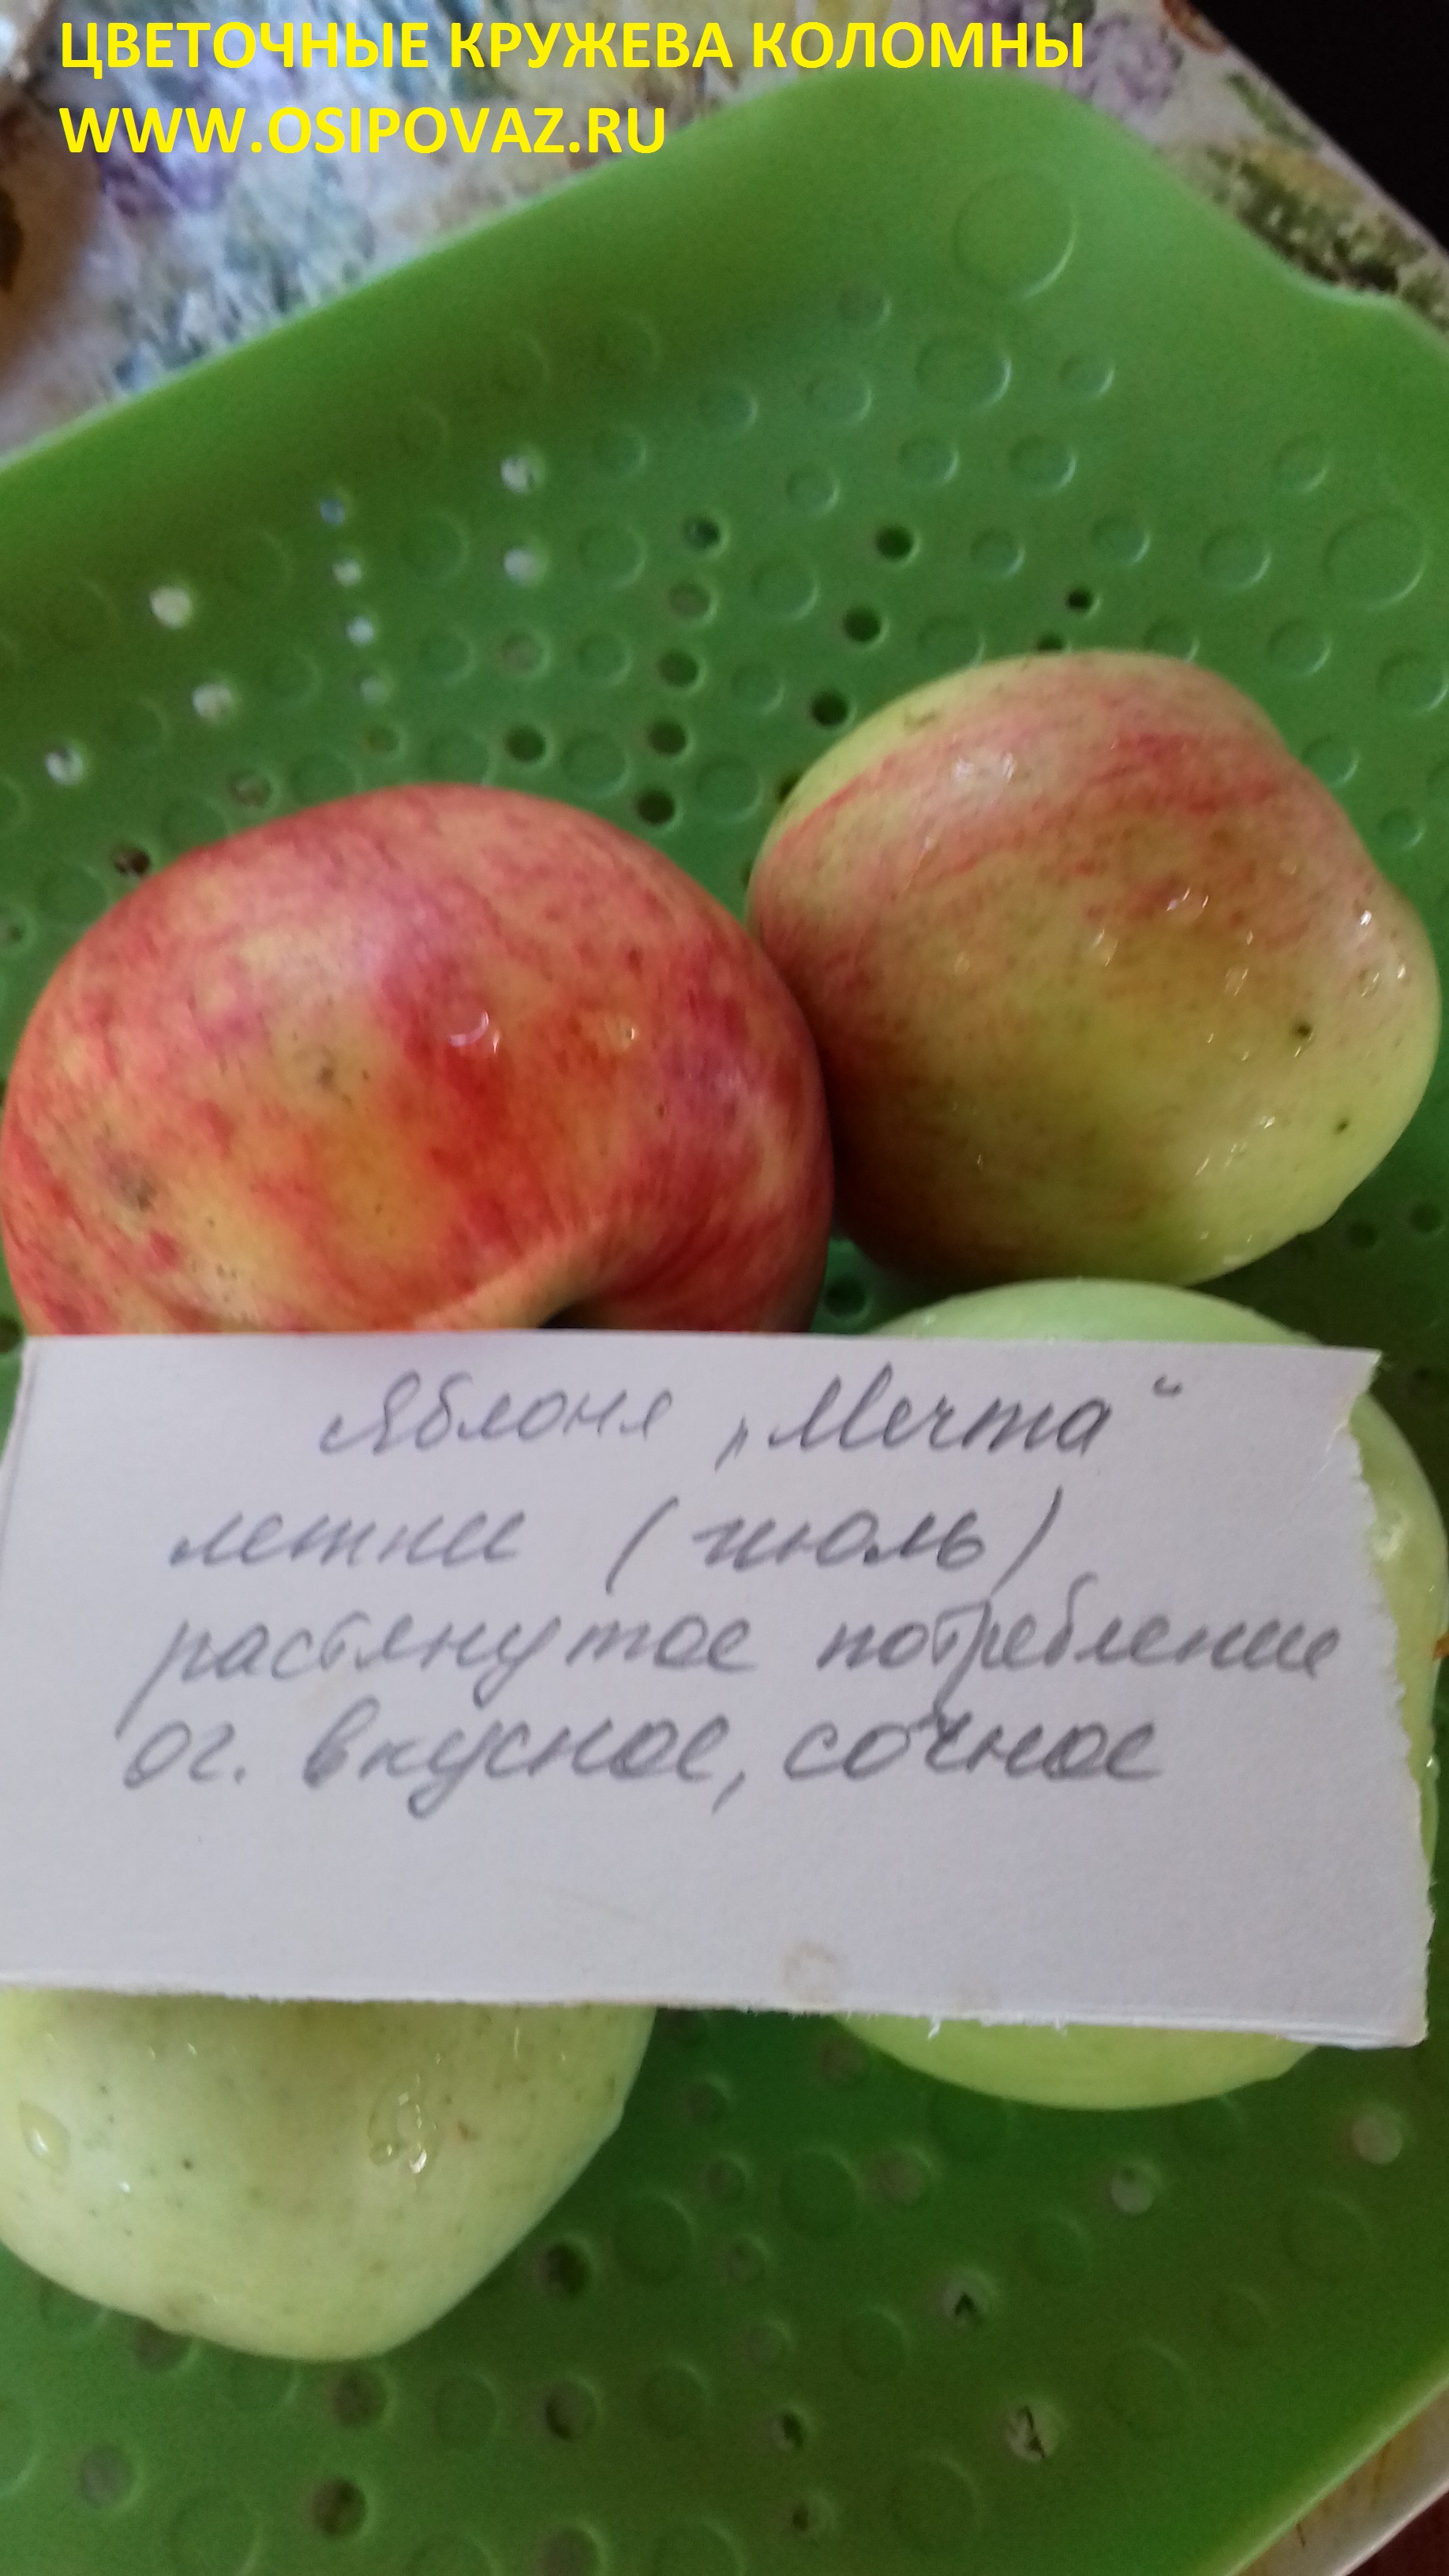 ЦВЕТОЧНЫЕ КРУЖЕВА КОЛОМНЫ
WWW.OSIPOVAZ.RU
Яблоня „Мечта“
летнее (июль)
растянутое потребление
оч. вкусное, сочное